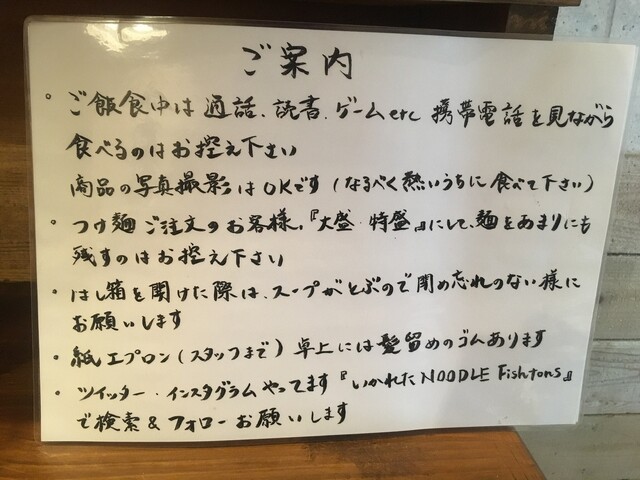 ご案内
・ご飯食中は通話、読書、ゲームetc 携帯電話を見ながら
食べるのはお控え下さい
商品の写真撮影はOKです(なるべく熱いうちに食べて下さい)
・つけ麺ご注文のお客様、『大盛 特盛』にして、麺をあまりにも
残すのはお控え下さい
・はし箱を開けた際は、スープがとぶので閉め忘れのない様に
お願いします
・紙エプロン(スタッフまで) 卓上には髪留めのゴムあります
・ツイッター・インスタグラムやってます『いかれたNOODLE Fishtons』
で検索&フォローお願いします